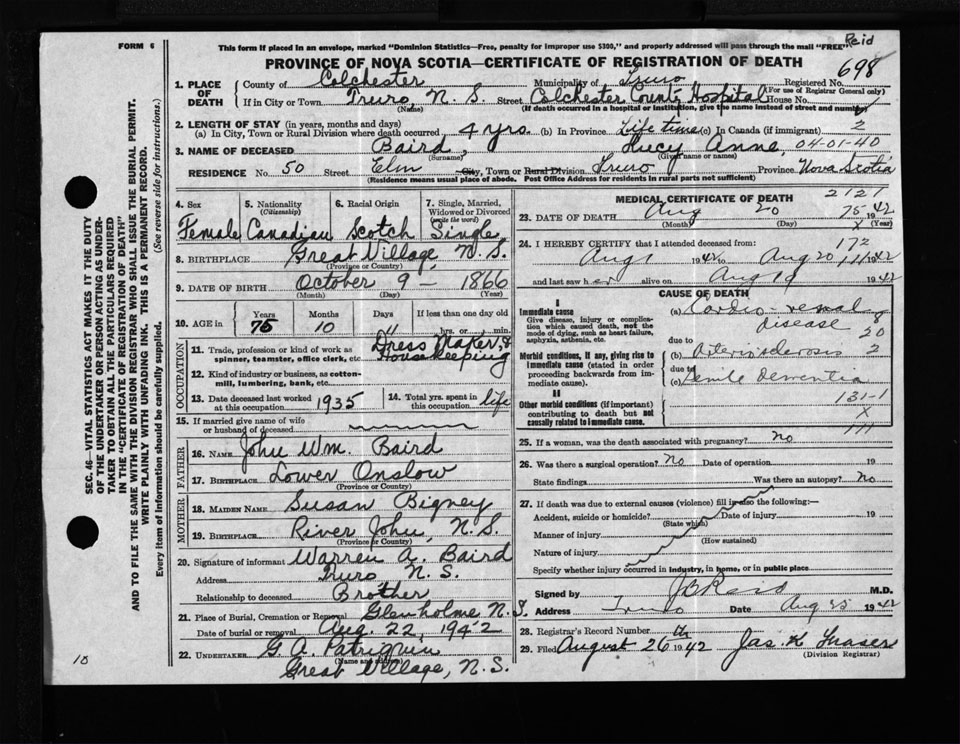 Reid
FORM 6
This form if placed in an envelope, marked "Dominion Statistics—Free, penalty for improper use $300," and properly addressed will pass through the mail "FREE"
PROVINCE OF NOVA SCOTIA—CERTIFICATE OF REGISTRATION OF DEATH
698
1. PLACE OF DEATH
County of Colchester Municipality of Truro Registered No.
(For use of Registrar General only)
If in City or Town Truro, N. S. Street Colchester County Hospital House No.
(Name) (If death occurred in a hospital or institution, give the name instead of street and number)
2. LENGTH OF STAY (in years, months and days)
(a) In City, Town or Rural Division where death occurred, 4 yrs. (b) In Province Life time (c) In Canada (if immigrant) 2
3. NAME OF DECEASED Baird, Lucy Anne, 04-01-40
(Surname) (Given name or names)
RESIDENCE No. 50 Street Elm City, Town or Rural Division Truro Province Nova Scotia
(Residence means usual place of abode. Post Office Address for residents in rural parts not sufficient)
4. Sex
Female
5. Nationality
(Citizenship)
Canadian
6. Racial Origin
Scotch
7. Single, Married, Widowed or Divorced
(write the word)
Single
8. BIRTHPLACE Great Village, N. S.
(Province or Country)
9. DATE OF BIRTH October 9 - 1866
(Month) (Day) (Year)
10. AGE in
Years Months Days If less than one day old
75 10 11 hrs. or min.
OCCUPATION
11. Trade, profession or kind of work as spinner, teamster, office clerk, etc. Dress Maker, & Housekeeping
12. Kind of industry or business, as cotton-mill, lumbering, bank, etc.
13. Date deceased last worked at this occupation 1935
14. Total yrs. spent in this occupation life
15. If married give name of wife or husband of deceased
FATHER
16. NAME John Wm. Baird
17. BIRTHPLACE Lower Onslow
(Province or Country)
MOTHER
18. MAIDEN NAME Susan Bigney
19. BIRTHPLACE River John, N. S.
(Province or Country)
20. Signature of informant Warren A. Baird
Address Truro N. S.
Relationship to deceased Brother
21. Place of Burial, Cremation or Removal Glenholme N. S.
Date of burial or removal Aug. 22, 1942
22. UNDERTAKER G. A. Patriquin
(Name and address)
Great Village, N. S.
MEDICAL CERTIFICATE OF DEATH
2121
23. DATE OF DEATH Aug 20 75 1942
(Month) (Day) (Year)
X
24. I HEREBY CERTIFY that I attended deceased from:
172
Aug 1 1942 to Aug 20 1942
and last saw her alive on Aug 19 1942
CAUSE OF DEATH
I
Immediate cause
Give disease, injury or complication which caused death, not the mode of dying, such as heart failure, asphyxia, asthenia, etc.
(a) Cardio-renal disease
due to
20
Morbid conditions, if any, giving rise to immediate cause (stated in order proceeding backwards from immediate cause).
(b) Arteriosclerosis 2
due to
(c) Senile Dementia
II
Other morbid conditions (if important) contributing to death but not causally related to immediate cause.
131-1
X
25. If a woman, was the death associated with pregnancy? No
26. Was there a surgical operation? No Date of operation 19
State findings Was there an autopsy? No
27. If death was due to external causes (violence) fill in also the following:—
Accident, suicide or homicide? Date of injury 19
(State which)
Manner of injury
(How sustained)
Nature of injury
Specify whether injury occurred in industry, in home, or in public place
Signed by J B Reid M.D.
Address Truro Date Aug 25 1942
28. Registrar's Record Number
29. Filed August 26th 1942 Jas. K Fraser
(Division Registrar)
SEC. 46—VITAL STATISTICS ACT MAKES IT THE DUTY
OF THE UNDERTAKER OR PERSON ACTING AS UNDER-
TAKER TO OBTAIN ALL THE PARTICULARS REQUIRED
IN THE "CERTIFICATE OF REGISTRATION OF DEATH"
AND TO FILE THE SAME WITH THE DIVISION REGISTRAR WHO SHALL ISSUE THE BURIAL PERMIT.
WRITE PLAINLY WITH UNFADING INK. THIS IS A PERMANENT RECORD.
Every item of information should be carefully supplied. (See reverse side for instructions.)
10